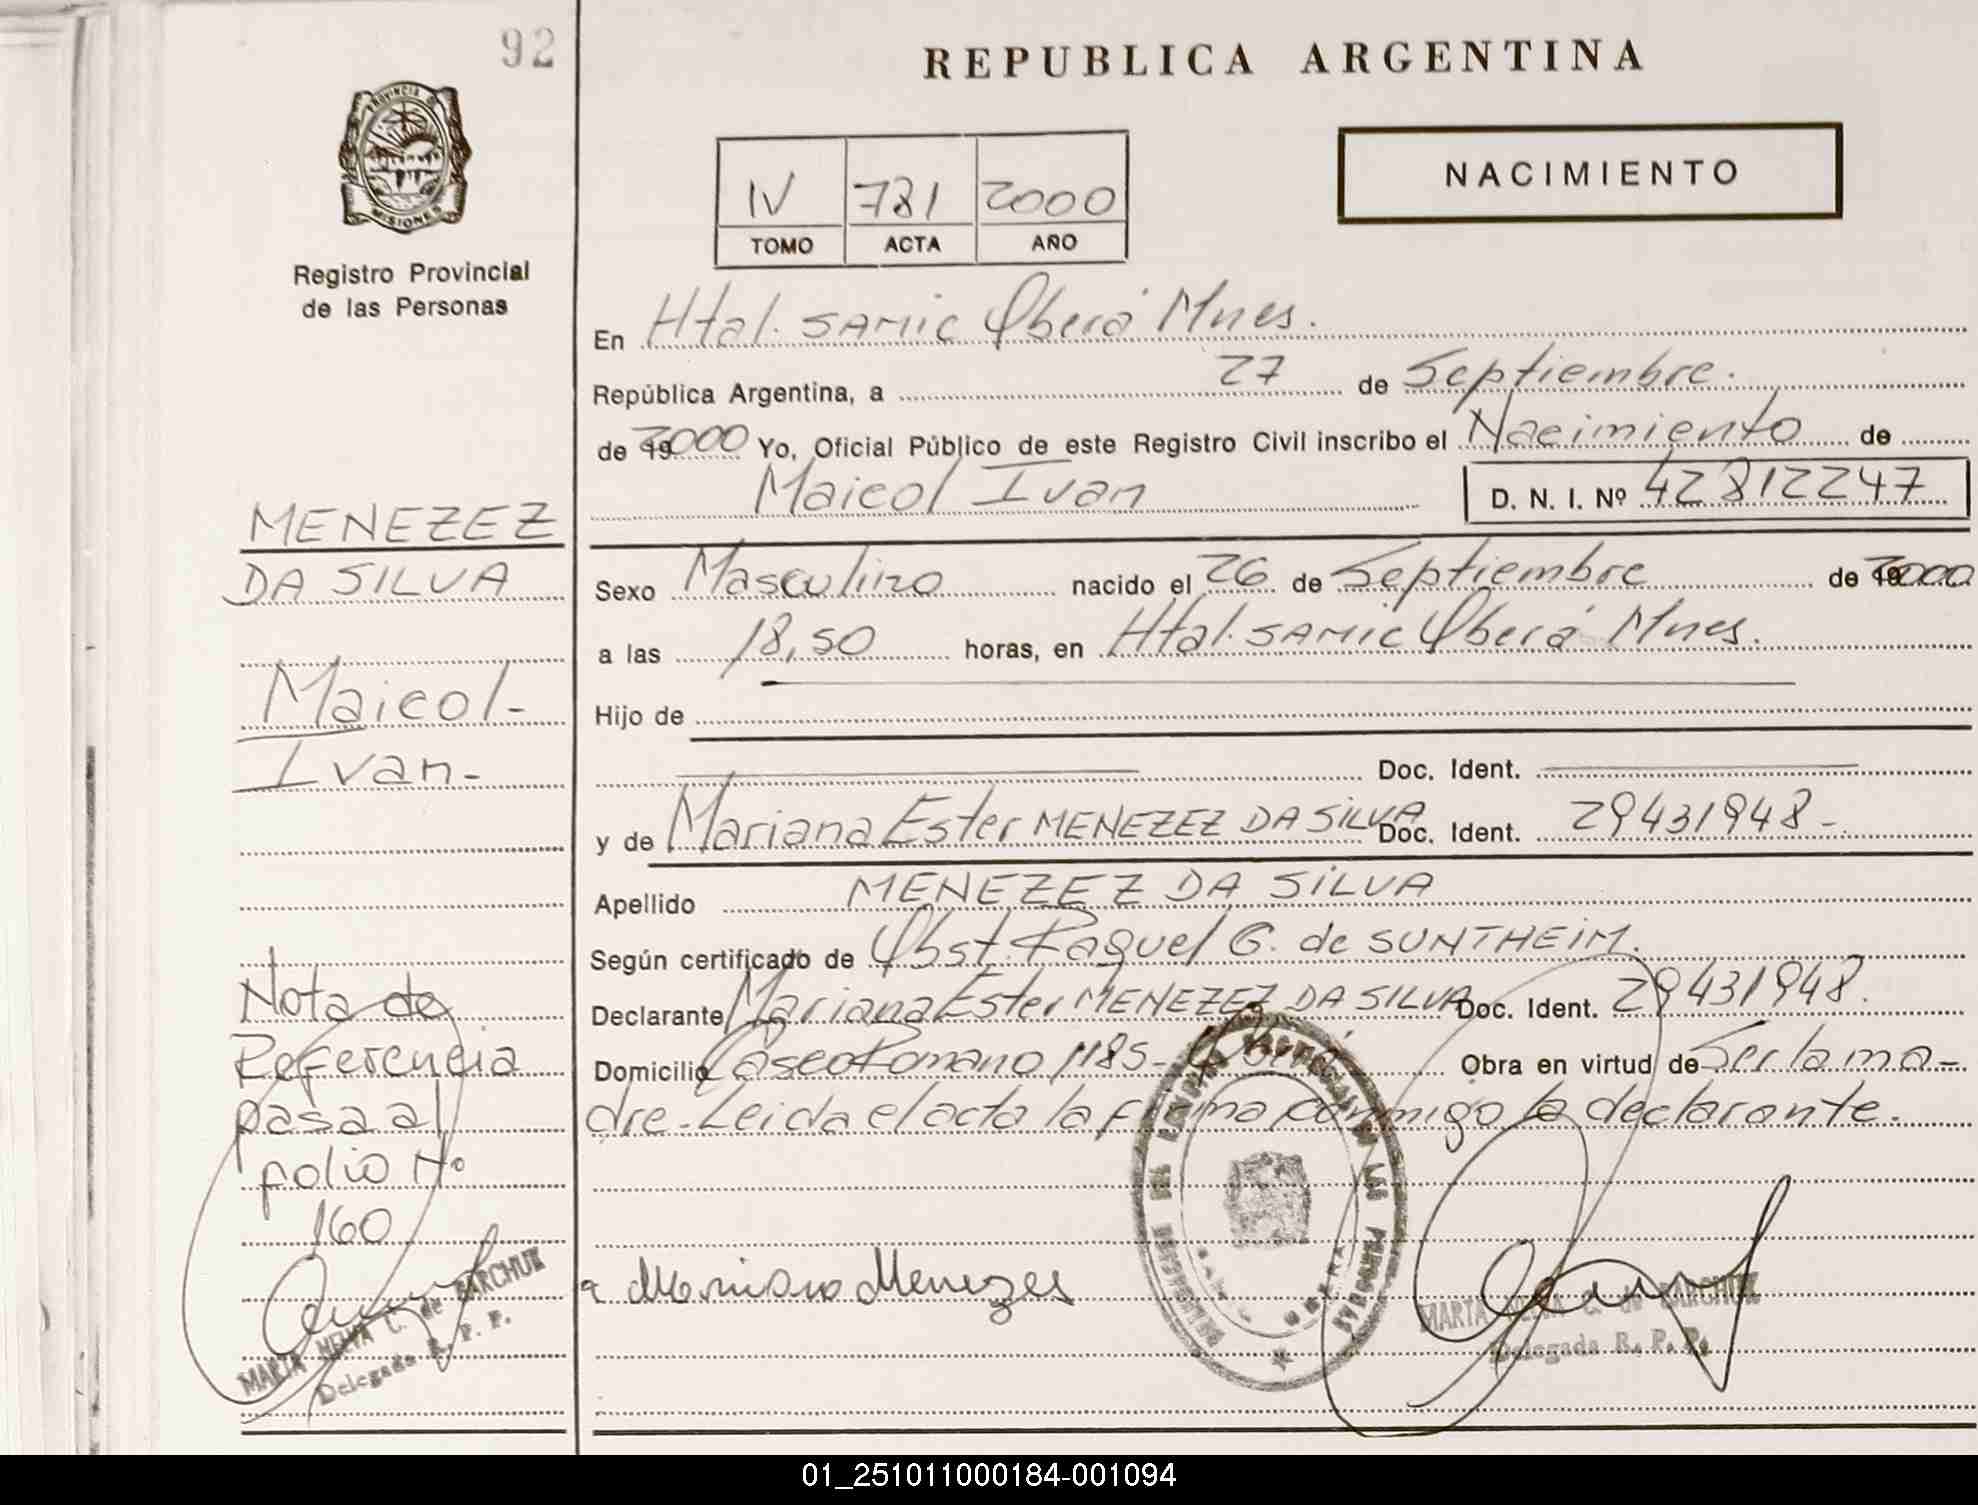 92
REPUBLICA ARGENTINA
PROVINCIA D
MISIONES
Registro Provincial
de las Personas
NACIMIENTO
IV 781 2000
TOMO ACTA AÑO
En Htal. SAMIC Oberá Mnes.
República Argentina, a 27 de Septiembre.
de 2000 Yo, Oficial Público de este Registro Civil inscribo el Nacimiento de
Maicol Ivan D. N. I. Nº 42812247
Sexo Masculino nacido el 26 de Septiembre de 2000
a las 18,50 horas, en Htal. SAMIC Oberá Mnes.
Hijo de
Doc. Ident.
y de Mariana Ester MENEZEZ DA SILVA Doc. Ident. 29431948-
Apellido MENEZEZ DA SILVA
Según certificado de Obst. Raquel G. de SUNTHEIM.
Declarante Mariana Ester MENEZEZ DA SILVA Doc. Ident. 29431948.
Domicilio Paseo Romano 1185- Oberá Obra en virtud de Ser la ma-
dre. Leida el acta la firma conmigo la declarante.
Mariana Menezes
MARTA NELVA C. de BARCHUK
Delegada R. P. P.
MENEZEZ
DA SILVA
Maicol-
Ivan-
Nota de
Referencia
pasa al
folio Nº
160
MARTA NELVA C. de BARCHUK
Delegada R. P. P.
01_251011000184-001094